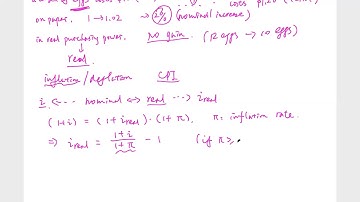 on paper. 1 → 1.02 2% (nominal increase)
in real purchasing power. No gain. (12 eggs → 10 eggs)
real.
inflation / deflation CPI
i <--- nominal ↔ real ---> i real
(1+i) = (1+ i real) · (1+ π) π = inflation rate.
⇒ i real = 1+i / 1+π - 1 (if π ≥